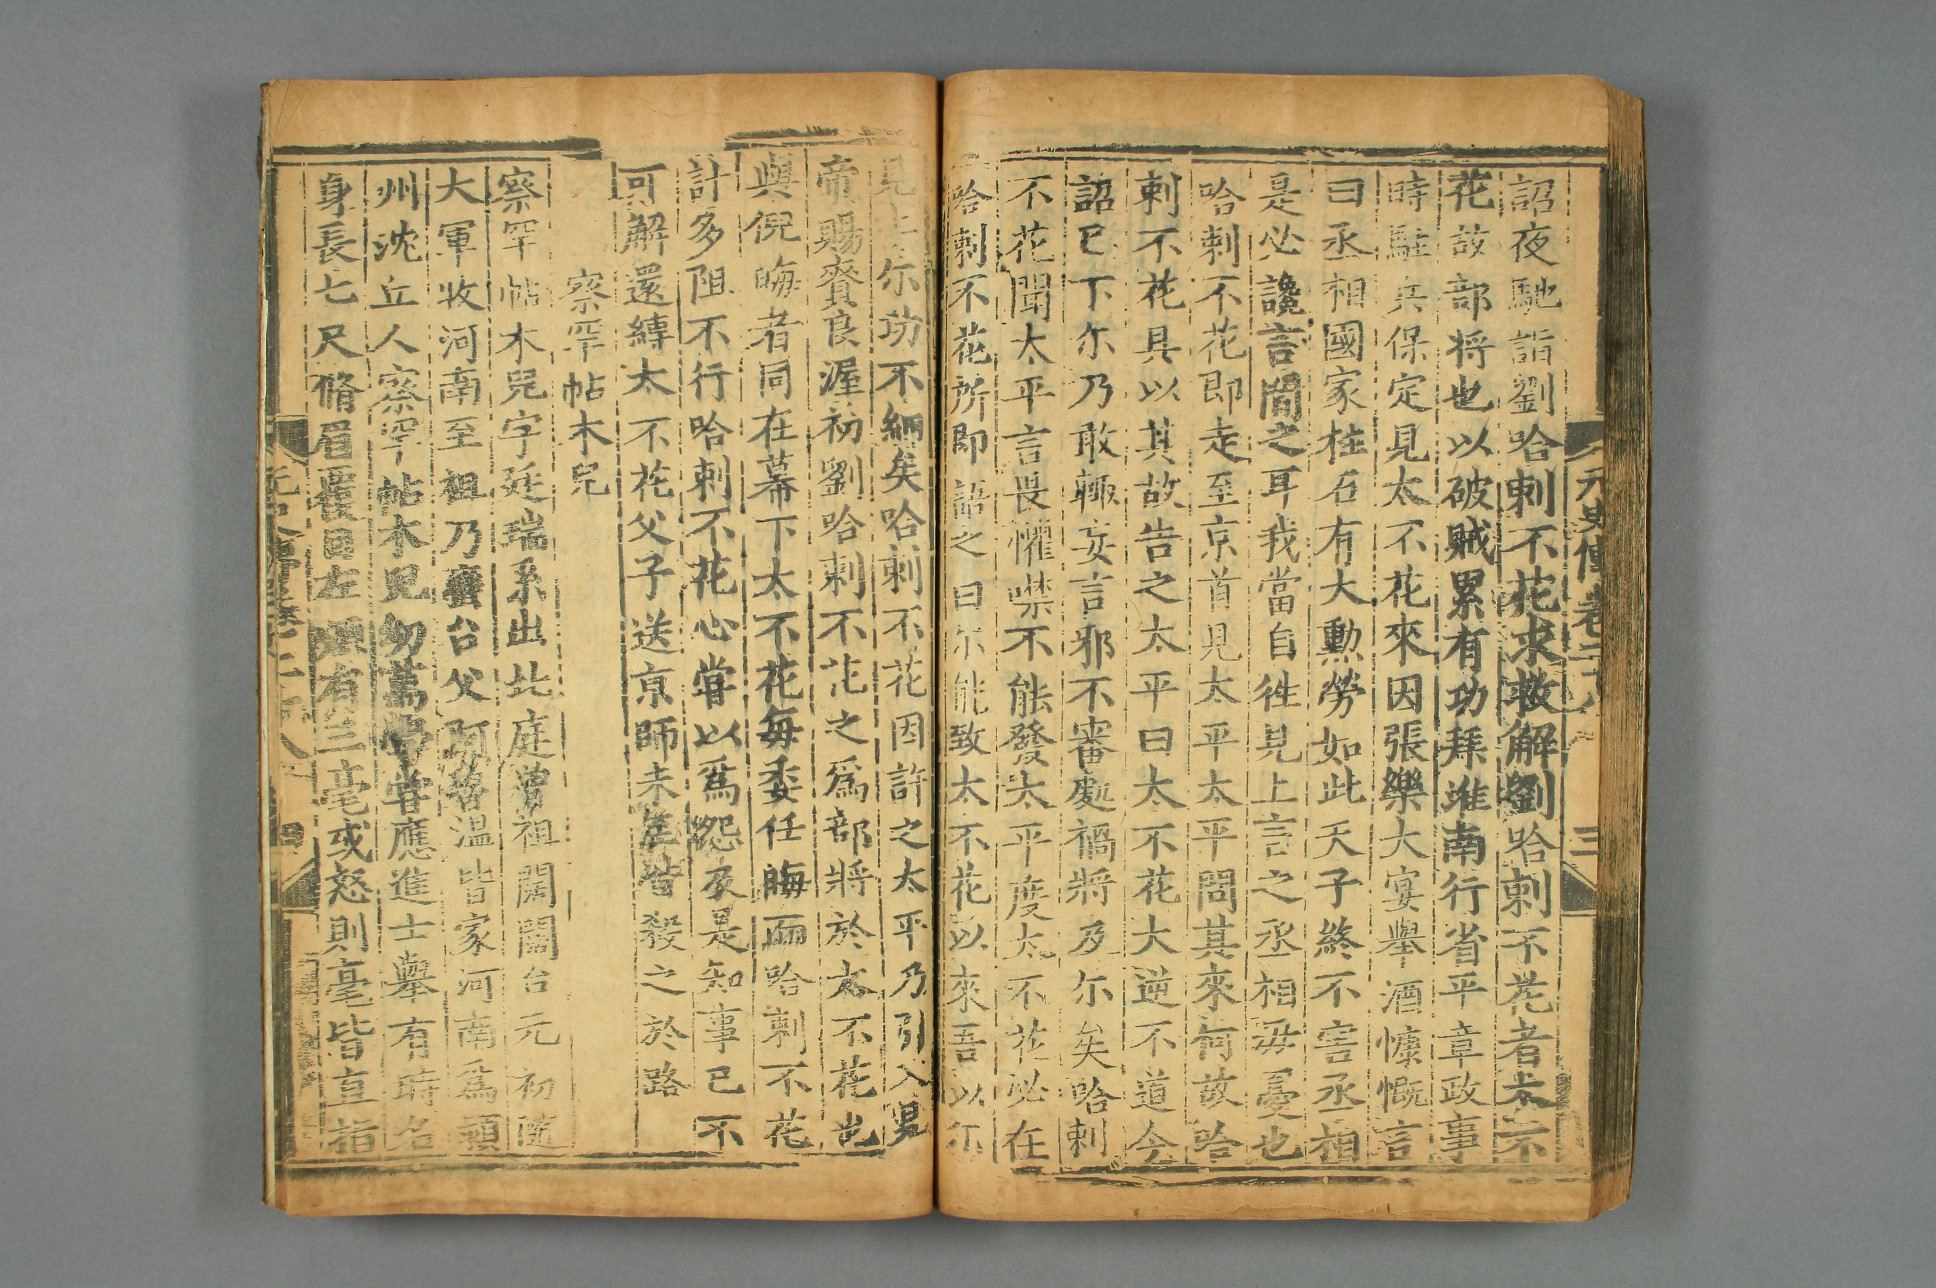 元史傳卷二十八
三
詔夜馳詣劉哈剌不花求救解劉哈剌不花者太不
花故部将也以破賊累有功拜淮南行省平章政事
時駐兵保定見太不花來因張樂大宴舉酒慷慨言
曰丞相國家柱石有大勲勞如此天子終不害丞相
是必讒言間之耳我當自徃見上言之丞相毋憂也
哈剌不花即走至京首見太平太平問其來何故哈
剌不花具以其故告之太平曰太不花大逆不道今
詔已下尓乃敢輙妄言邪不審處禍將及尓矣哈剌
不花聞太平言畏懼噤不能發太平度太不花必在
哈剌不花所即語之曰尓能致太不花以來吾以尓
見上尓功不細矣哈剌不花因許之太平乃引入見
帝賜賚良渥初劉哈剌不花之爲部將於太不花也
與倪晦者同在幕下太不花每委任晦而哈剌不花
計多阻不行哈剌不花心甞以爲怨及是知事已不
可解還縛太不花父子送京師未至皆殺之於路
察罕帖木兒
察罕帖木兒字廷瑞系出北庭曾祖闊闊台元初隨
大軍收河南至祖乃蠻台父阿魯溫皆家河南爲頴
州沈丘人察罕帖木兒幼篤學甞應進士舉有時名
身長七尺脩眉覆目左頰有三毫或怒則毫皆直指
四